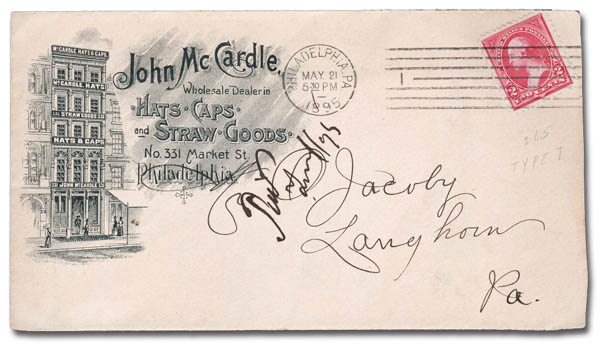 McCARDLE HATS & CAPS.
McCARDLE HATS
STRAW GOODS
HATS & CAPS
JOHN McCARDLE
John McCardle,
Wholesale Dealer in
HATS · CAPS ·
and STRAW · GOODS ·
No. 331 Market St.
Philadelphia.
PHILADELPHIA, PA
MAY. 21
5 30 PM
1895
1
2 2
265
TYPE I
Jacoby
Langhorn
Pa.